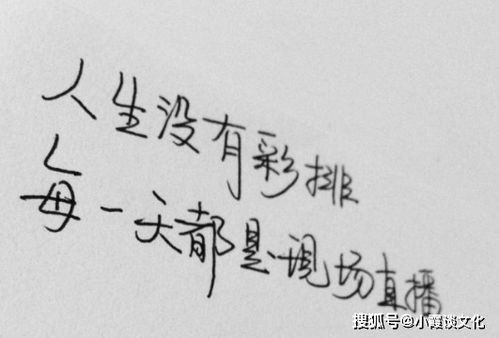 人生没有彩排
每一天都是现场直播
搜狐号@小霞谈文化